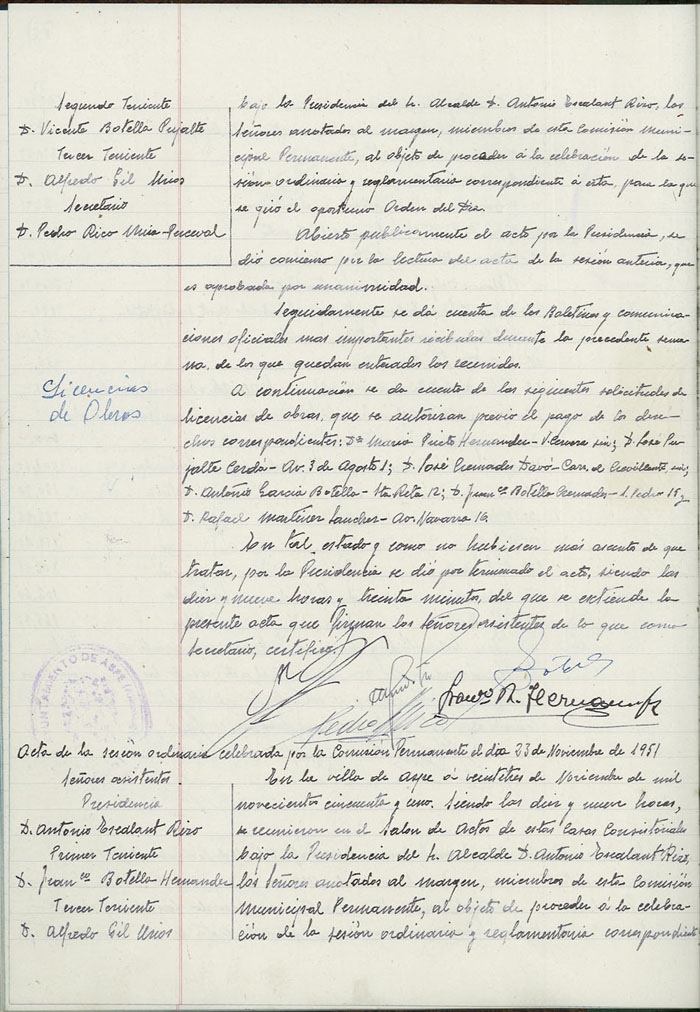 Segundo Teniente
D. Vicente Botella Pujalte
Tercer Teniente
D. Alfredo Gil Mios
Secretario
D. Pedro Rico Mira-Perceval
bajo la Presidencia del Sr. Alcalde D. Antonio Escalant Rizo, los
Señores anotados al margen, miembros de esta Comisión Muni-
cipal Permanente, al objeto de proceder á la celebración de la se-
sión ordinaria y reglamentaria correspondiente á esta, para la que
se giró el oportuno Orden del Dia.
Abierto publicamente el acto por la Presidencia, se
dió comienzo por la lectura del acta de la sesión anterior, que
es aprobada por unanimidad.
Seguidamente se dá cuenta de los Boletines y comunica-
ciones oficiales mas importantes recibidas durante la precedente sema
na, de los que quedan enterados los reunidos.
Licencias
de Obras
A continuación se da cuenta de las siguientes solicitudes de
licencias de obras, que se autorizan previo el pago de los dere-
chos correspondientes: Dª Maria Prieto Hernandez - sin; D. José Pu-
jalte Cerdá - Av. 3 de Agosto 1; D. José Cremades Davó - Carr. de Crevillente, sin;
D. Antonio Garcia Botella - Sta Rita 12; D. Franco Botella Cremades - S. Pedro 15 y
D. Rafael Martinez Sanchez - Av. Navarra 16.
En tal estado y como no hubiesen más asuntos de que
tratar, por la Presidencia se dió por terminado el acto, siendo las
diez y nueve horas y treinta minutos, del que se extiende la
presente acta que firman los señores asistentes de lo que como
Secretario, certifico.
AYUNTAMIENTO DE ASPE
Pedro Rico
Acta de la sesión ordinaria celebrada por la Comision Permanente el dia 23 de Noviembre de 1951
Señores asistentes
Presidencia
D. Antonio Escalant Rizo
Primer Teniente
D. Franco Botella Hernandez
Tercer Teniente
D. Alfredo Gil Mios
En la villa de Aspe á veintitres de Noviembre de mil
novecientos cincuenta y uno. Siendo las diez y nueve horas,
se reunieron en el Salon de Actos de estas Casas Consistoriales
bajo la Presidencia del Sr. Alcalde D. Antonio Escalant Rizo,
los Señores anotados al margen, miembros de esta Comisión
Municipal Permanente, al objeto de proceder á la celebra-
ción de la sesión ordinaria y reglamentaria correspondiente